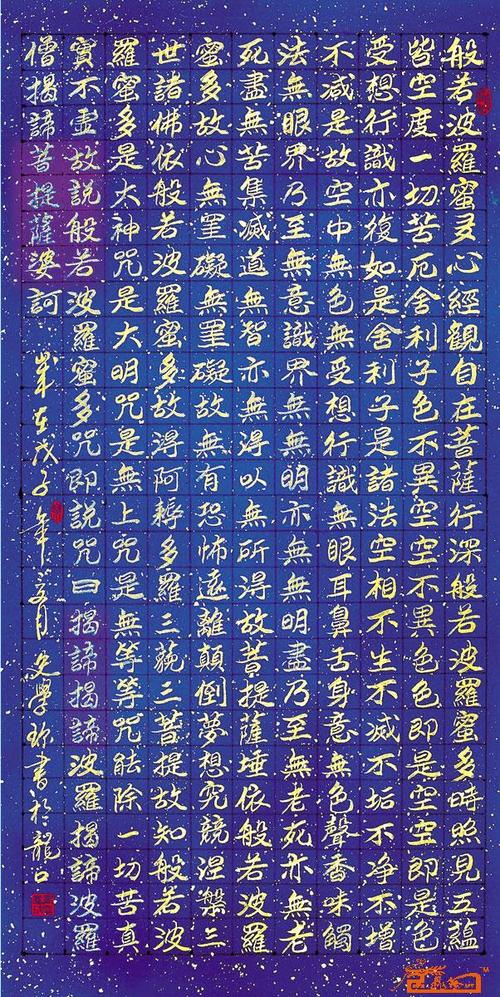 般若波羅蜜多心經觀自在菩薩行深般若波羅蜜多時照見五蘊
皆空度一切苦厄舍利子色不異空空不異色色即是空空即是色
受想行識亦復如是舍利子是諸法空相不生不滅不垢不净不增
不減是故空中無色無受想行識無眼耳鼻舌身意無色聲香味觸
法無眼界乃至無意識界無無明亦無無明盡乃至無老死亦無老
死盡無苦集滅道無智亦無得以無所得故菩提薩埵依般若波羅
蜜多故心無罣礙無罣礙故無有恐怖遠離顛倒夢想究競涅槃三
世諸佛依般若波羅蜜多故得阿耨多羅三藐三菩提故知般若波
羅蜜多是大神咒是大明咒是無上咒是無等等咒能除一切苦真
實不虛故說般若波羅蜜多咒即說咒曰揭諦揭諦波羅揭諦波羅
僧揭諦菩提薩婆訶 歲在戊子年 月 史學 書於龍口